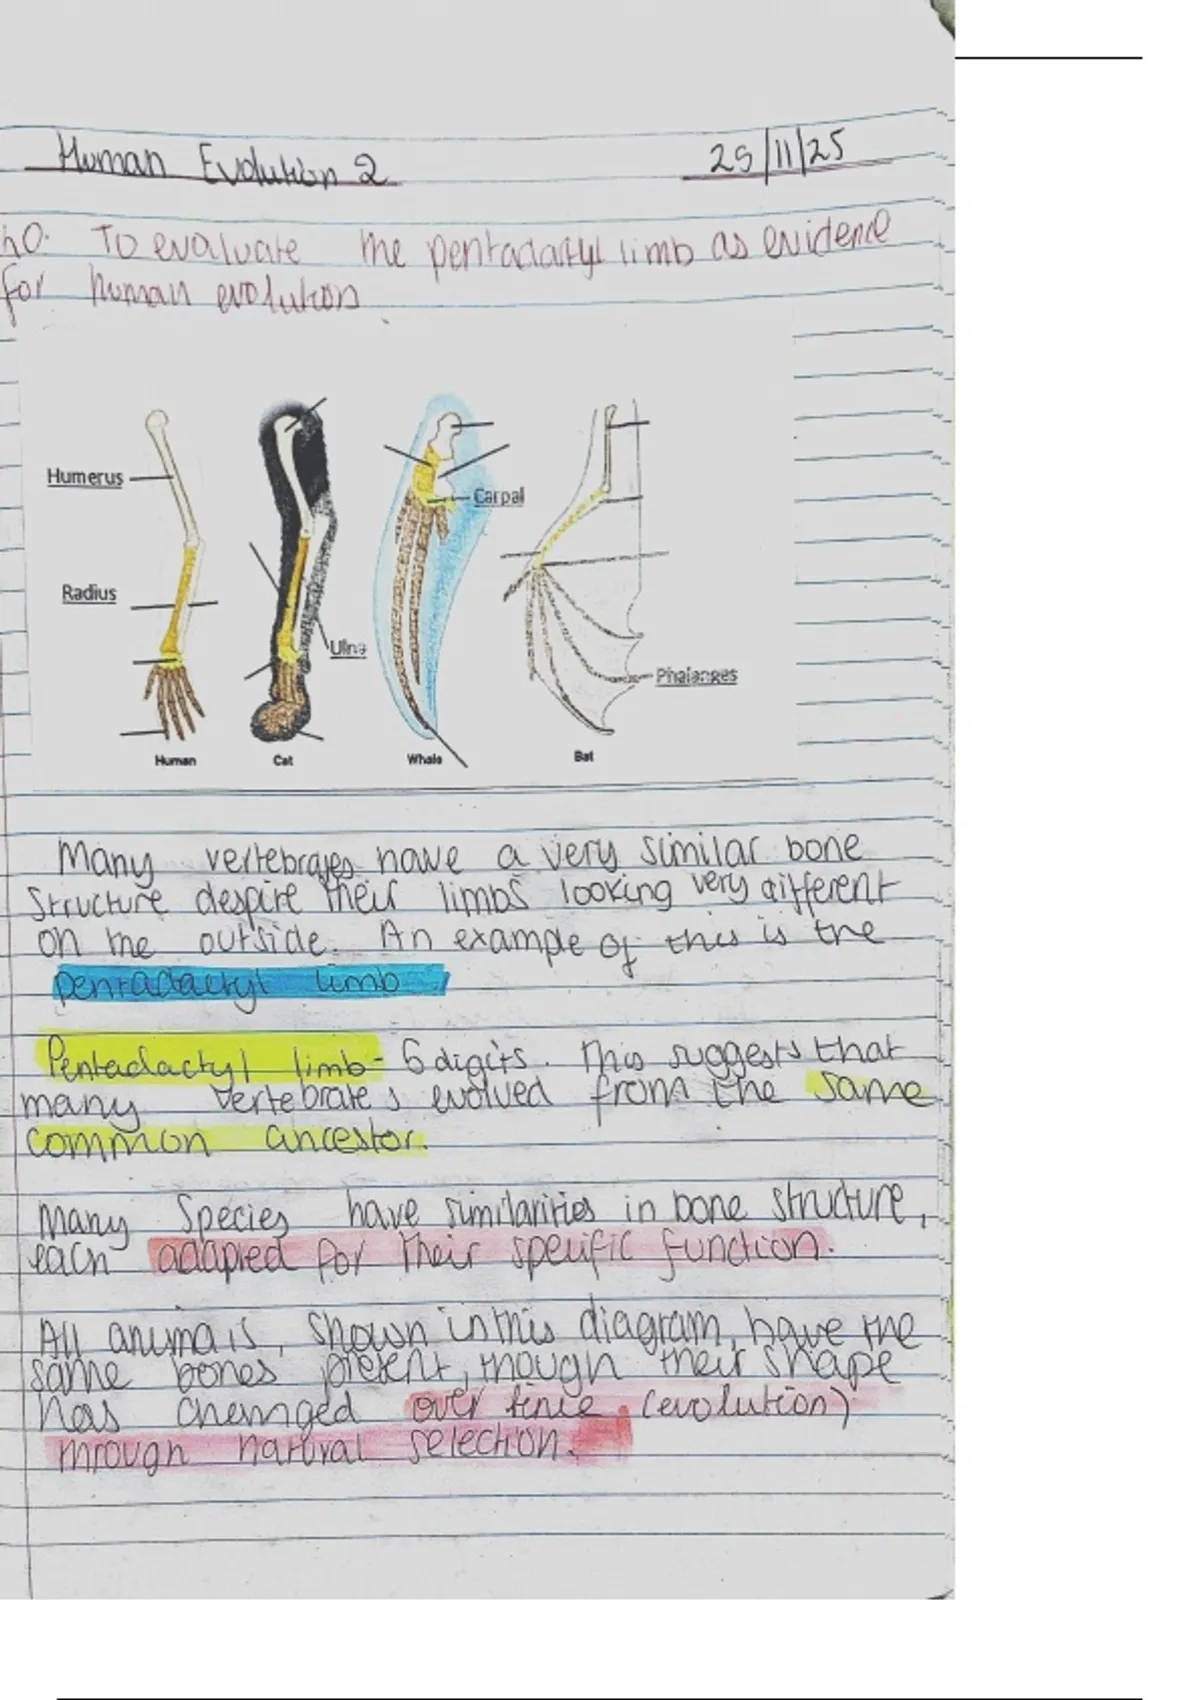 Human Evolution 2 25/11/25
LO: To evaluate the pentadactyl limb as evidence
for human evolution
Humerus
Carpal
Radius
Ulna
Phalanges
Human Cat Whale Bat
Many vertebrates have a very similar bone
structure despite their limbs looking very different
on the outside. An example of this is the
pentadactyl limb
Pentadactyl limb- 6 digits. This suggests that
many vertebrates evolved from the same
common ancestor.
Many species have similarities in bone structure,
each adapted for their specific function.
All animals, shown in this diagram, have the
same bones present, though their shape
has changed over time (evolution)
through natural selection.